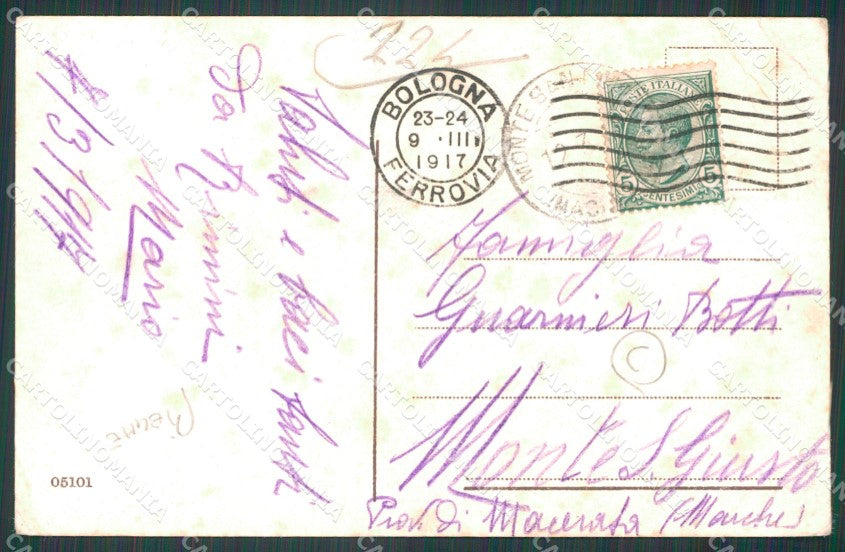 224
Saluti e baci tanti
Da Rimini
Mario
8/3 1917
Rimini
05101
BOLOGNA
23-24
9 · III
1917
FERROVIA
MONTE SAN
(MAC
POSTE ITALIANE
5 CENTESIMI 5
Famiglia
Guarnieri Botti
Monte S Giusto
Prov. di Macerata (Marche)
C
CARTOLINOMANIA